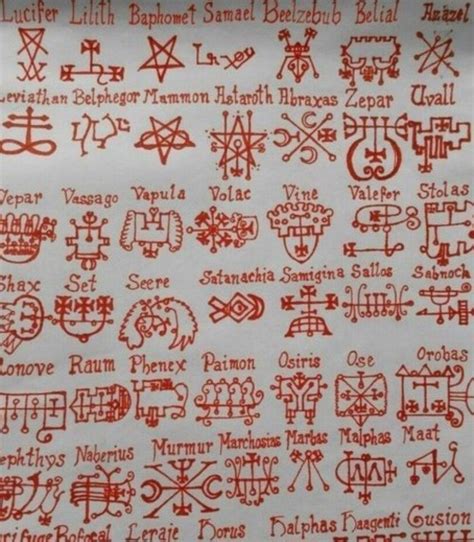 Lucifer Lilith Baphomet Samael Beelzebub Belial Azazel
Leviathan Belphegor Mammon Astaroth Abraxas Zepar Uvall
Vepar Vassago Vapula Volac Vine Valefer Stolas
Shax Set Seere Satanachia Samigina Sallos Sabnock
Ronove Raum Phenex Paimon Osiris Ose Orobas
ephthys Naberius Murmur Marchosias Marbas Malphas Maat
cifuge Rofocal Leraje Horus Halphas Haagenti Gusion